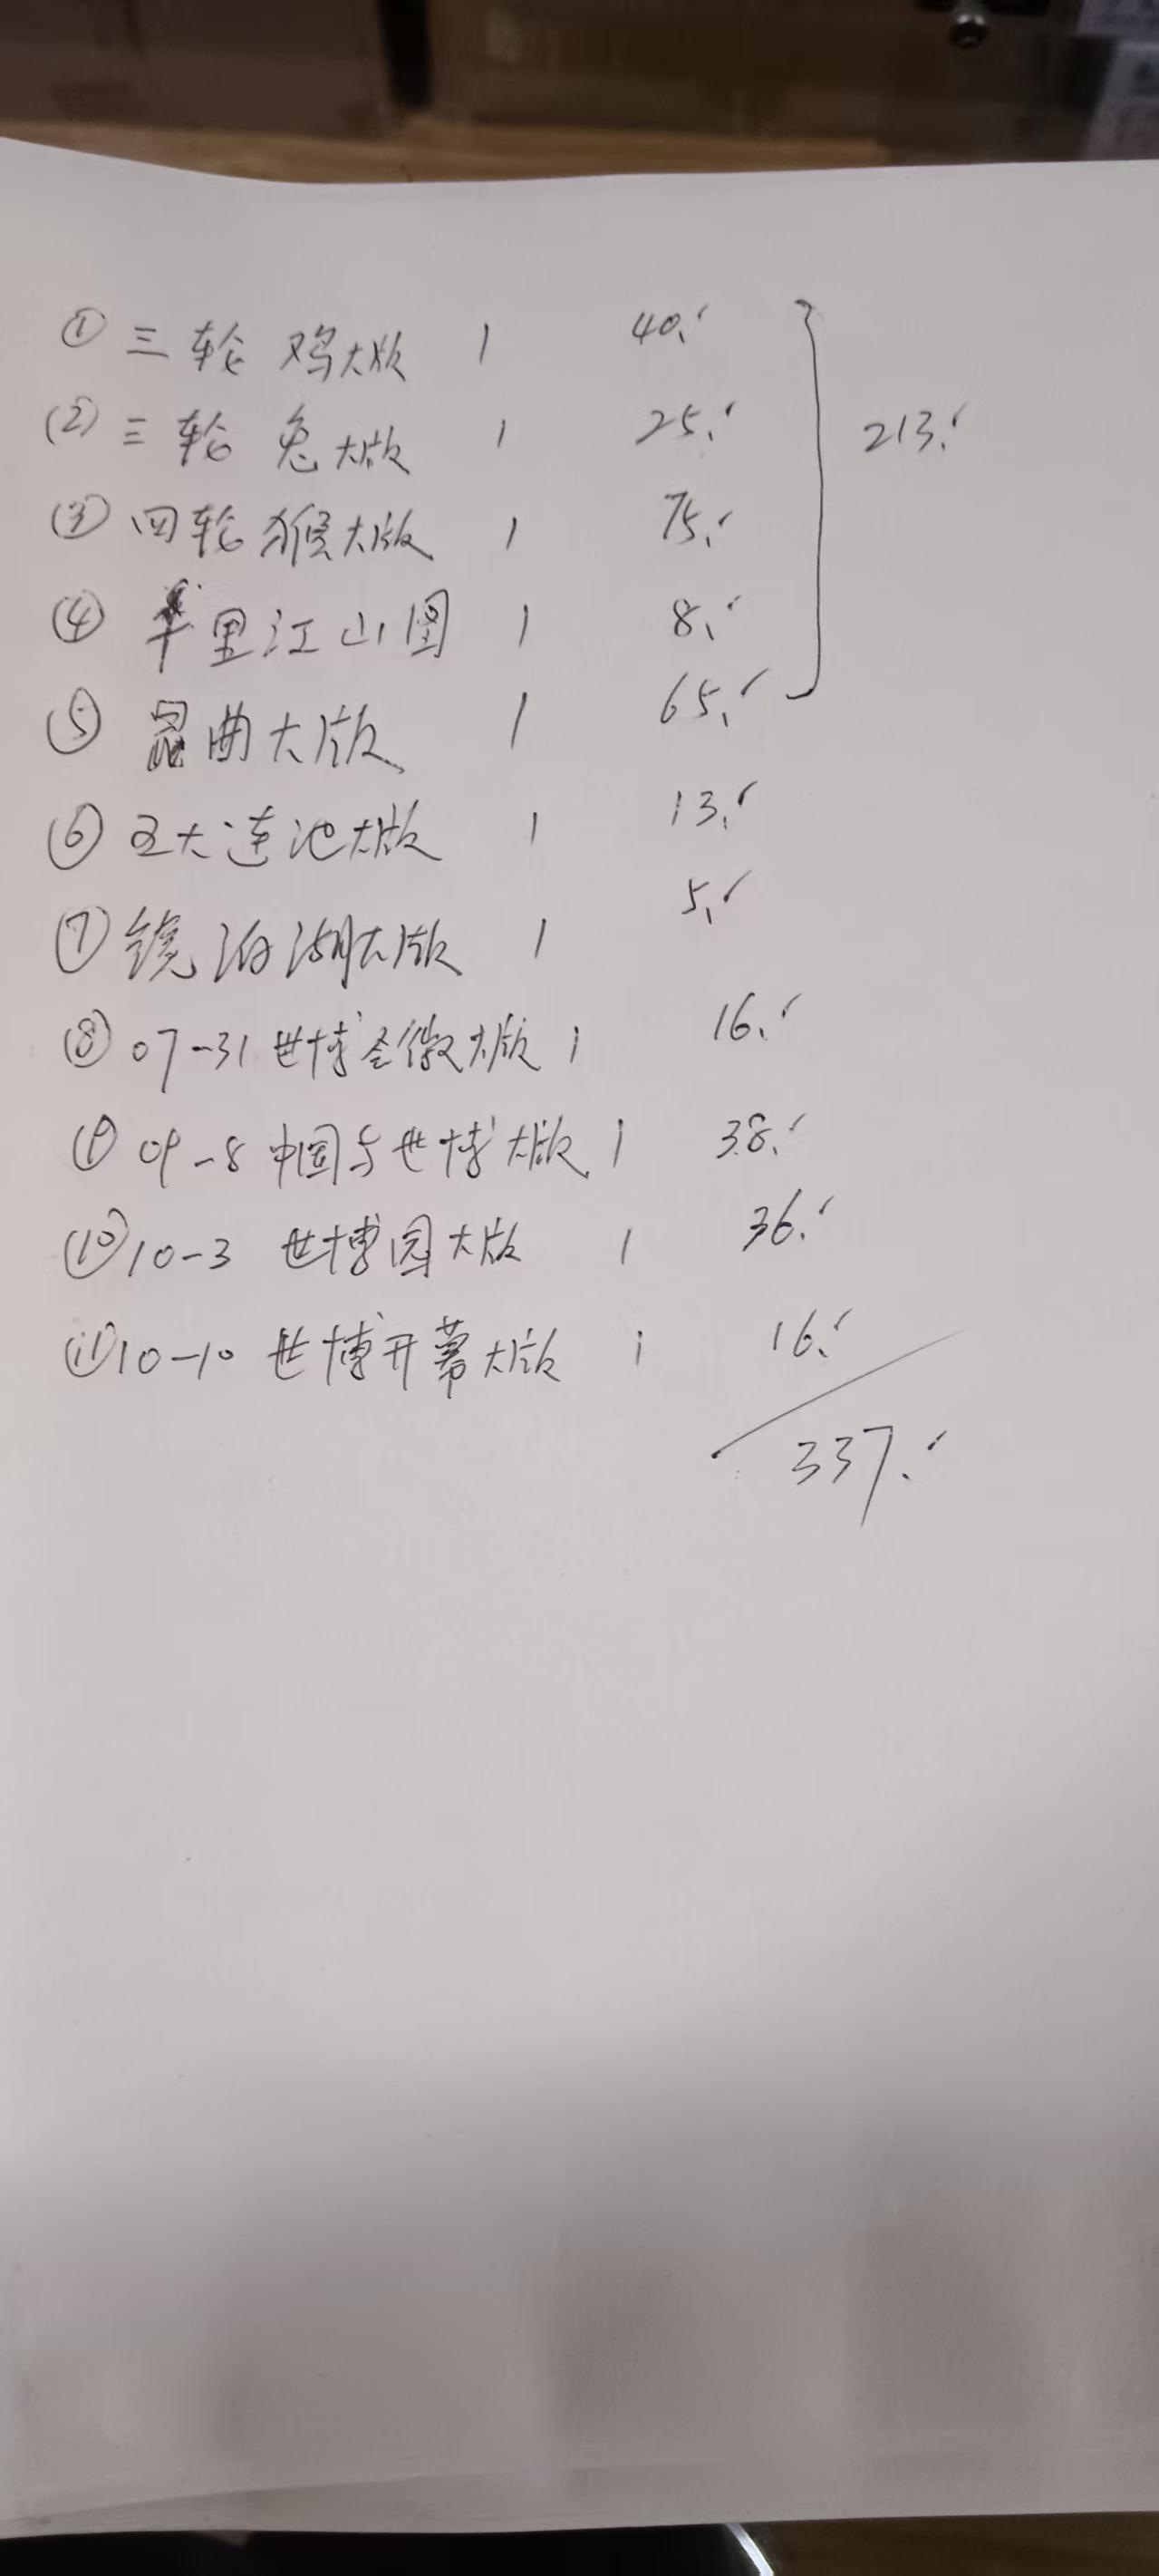 ① 三轮鸡大版 1 40.-
② 三轮兔大版 1 25.-
③ 四轮猴大版 1 75.-
213.-
④ 千里江山图 1 8.-
⑤ 昆曲大版 1 65.-
⑥ 五大连池大版 1 13.-
⑦ 镜泊湖大版 1 5.-
⑧ 07-31 世博会徽大版 1 16.-
⑨ 09-8 中国与世博大版 1 38.-
⑩ 10-3 世博园大版 1 36.-
⑪ 10-10 世博开幕大版 1 16.-
337.-